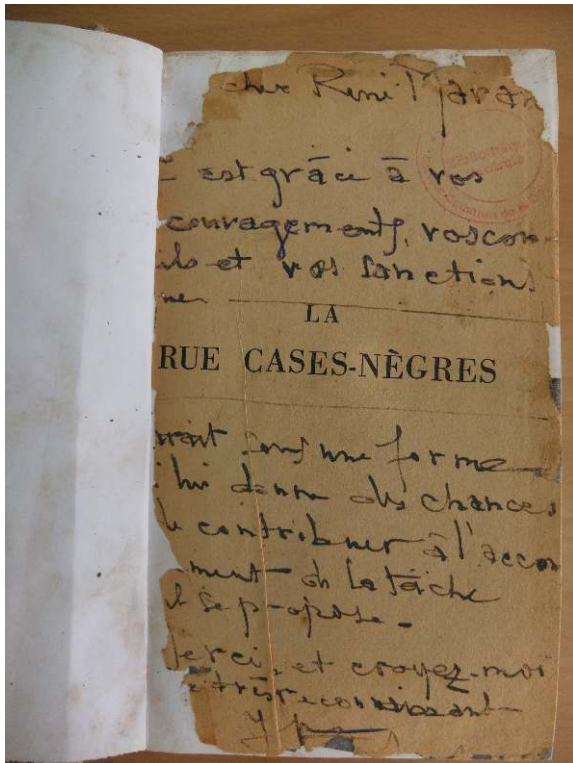 cher René Maran
est grâce à vos
couragements, vos con-
ils et vos sanctions
LA
RUE CASES-NÈGRES
sous une forme
lui donne des chances
contribuer à l'accom
ment de la tâche
se propose.
erci, et croyez-moi
très reconnaissant